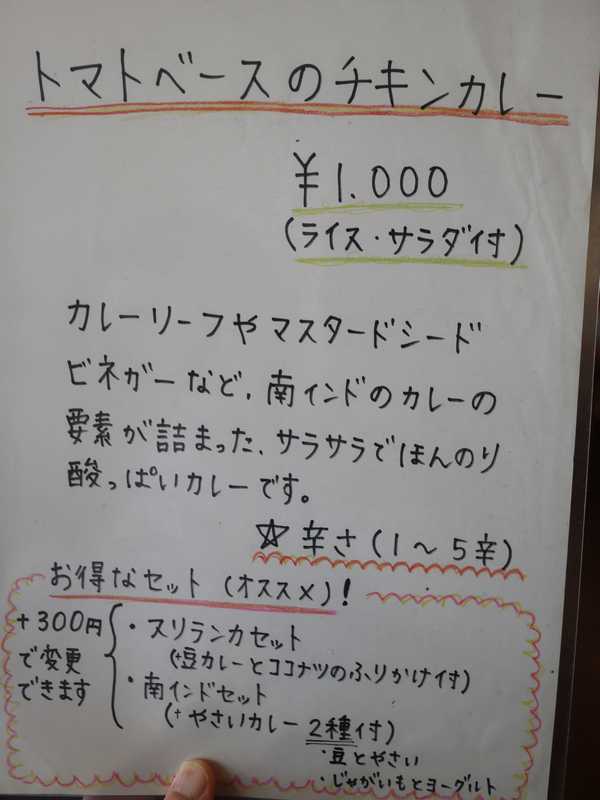 トマトベースのチキンカレー
¥1.000
(ライス・サラダ付)
カレーリーフやマスタードシード
ビネガーなど、南インドのカレーの
要素が詰まった、サラサラでほんのり
酸っぱいカレーです。
☆辛さ(1〜5辛)
お得なセット(オススメ)!
+300円
で変更
できます
・スリランカセット
(+豆カレーとココナツのふりかけ付)
・南インドセット
(+やさいカレー2種付)
・豆とやさい
・じゃがいもとヨーグルト